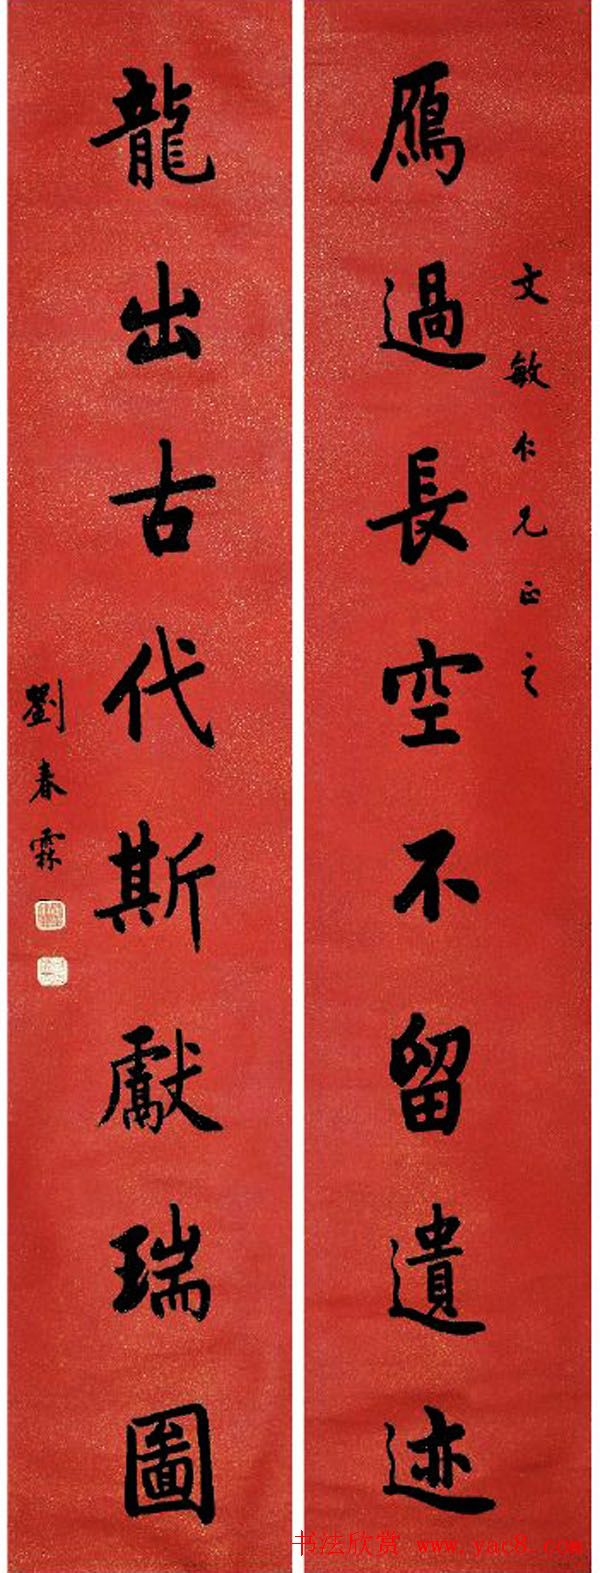 文敏仁兄正之
雁過長空不留遺迹
龍出古代斯獻瑞圖
劉春霖
书法欣赏 www.yac8.com